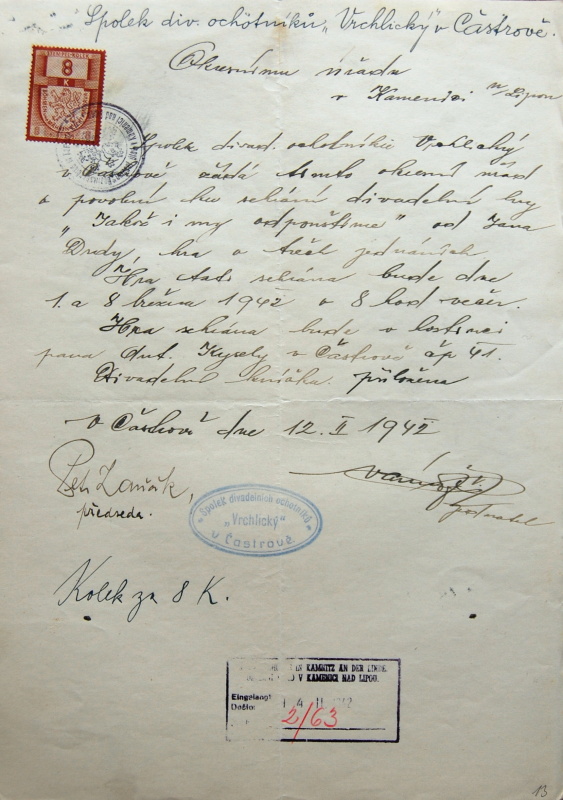 Spolek div. ochotníků „Vrchlický" v Částrově.
STEMPEL-KOLEK
8
K
8 8
Okresnímu úřadu
v Kamenici n/Lipou
Spolek divad. ochotníků Vrchlický
v Částrově žádá tímto okresní úřad
o povolení ku sehrání divadelní hry
„Jakož i my odpouštíme" od Jana
Drdy, hra o třech jednáních
Hra tato sehrána bude dne
1. a 8 března 1942 o 8 hod večer.
Hra sehrána bude v hostinci
pana Ant. Kysely v Částrově čp 41.
Divadelní knížka přiložena
V Částrově dne 12. II 1942
Petr
předseda.
Spolek divadelních ochotníků
„Vrchlický"
v Částrově
Kolek za 8 K.
IN KAMNITZ AN DER LINDE
V KAMENICI NAD LIPOU.
Eingelangt
Došlo:
2/63
13